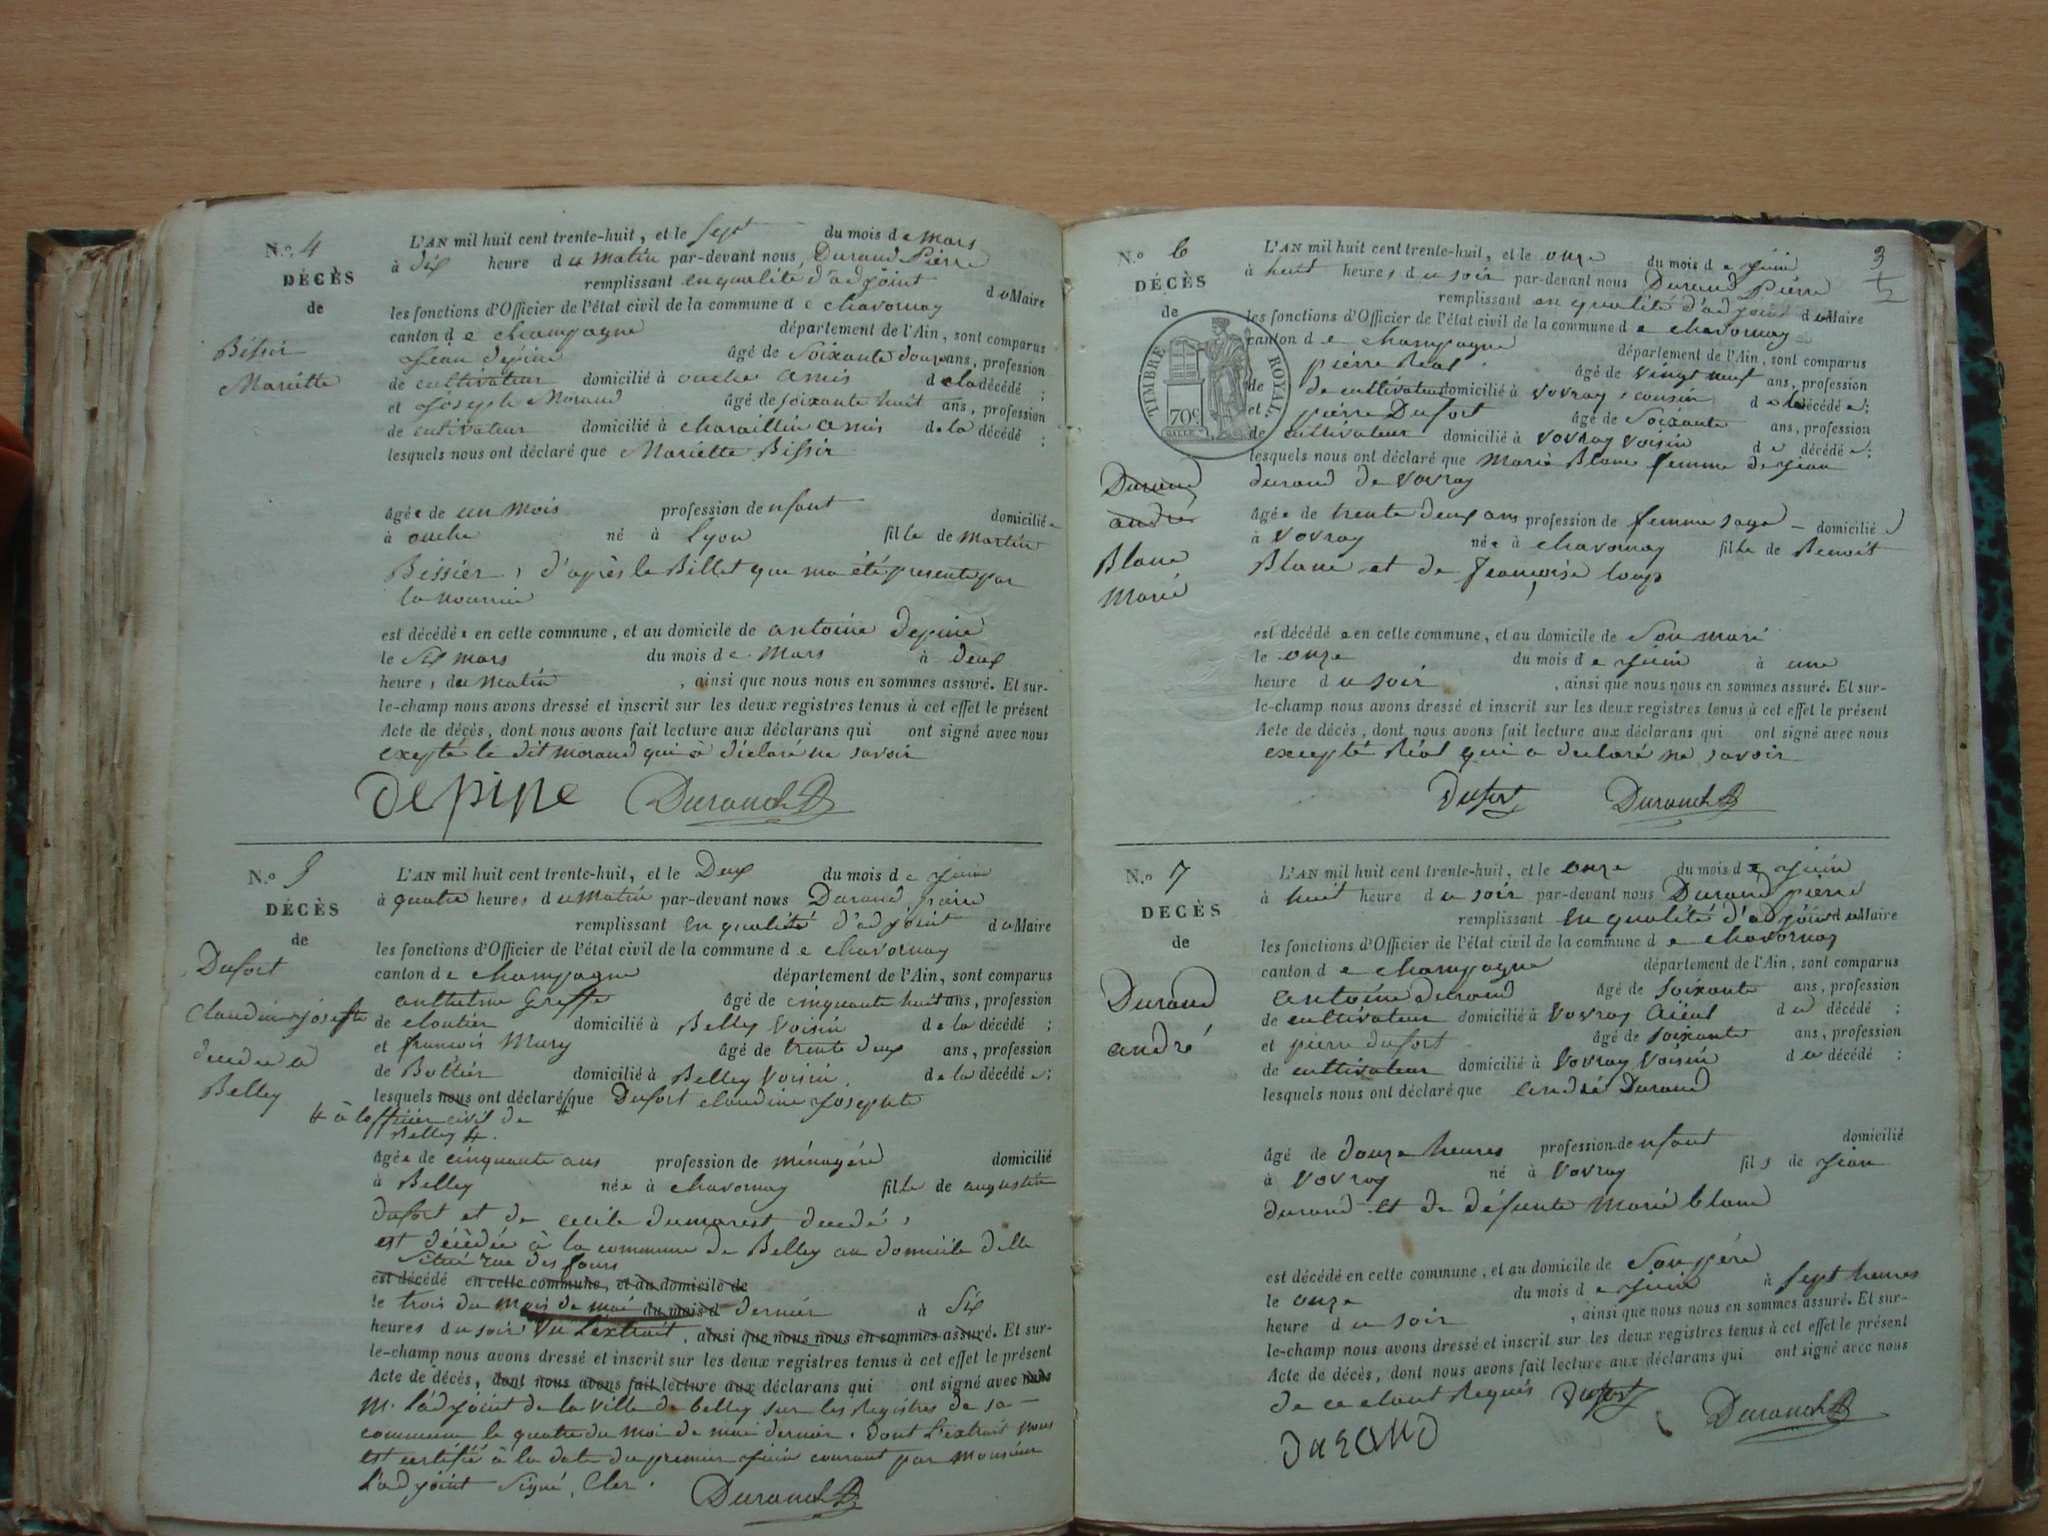 N.o 4
DÉCÈS
de
Bissir
Mariette
L'AN mil huit cent trente-huit, et le sept du mois de mars
à dix heure du matin par-devant nous Durand Pierre
remplissant en qualité d'adjoint du Maire
les fonctions d'Officier de l'état civil de la commune de chavornay
canton de champagne département de l'Ain, sont comparus
Jean depine âgé de Soixante douze ans, profession
de cultivateur domicilié à ouche amis de la décédé ;
et Joseph Morand âgé de soixante huit ans, profession
de cutivateur domicilié à charaillin amis de la décédé ;
lesquels nous ont déclaré que Mariette Bissir
âgée de un mois profession denfant domiciliée
à ouche né à Lyon fille de martin
Bissier, d'après le Billet que ma été presente par
la nourrice
est décédée en cette commune, et au domicile de antoine depine
le Six mars du mois de Mars à deux
heure, du matin, ainsi que nous nous en sommes assuré. Et sur-
le-champ nous avons dressé et inscrit sur les deux registres tenus à cet effet le présent
Acte de décès, dont nous avons fait lecture aux déclarans qui ont signé avec nous
exepté le dit morand qui à déclaré ne savoir
depine Durand
N.o 5
DÉCÈS
de
Dufort
Claudine josephte
décédée à
Belley
L'AN mil huit cent trente-huit, et le Deux du mois de Juin
à quatre heures du Matin par-devant nous Durand pierre
remplissant en qualité d'adjoint du Maire
les fonctions d'Officier de l'état civil de la commune de chavornay
canton de champagne département de l'Ain, sont comparus
anthelme Greffe âgé de cinquante huit ans, profession
de cloutier domicilié à Belley Voisin de la décédé ;
et francois Mury âgé de trente deux ans, profession
de Bottier domicilié à Belley Voisin de la décédée ;
lesquels nous ont déclaré que Dufort claudine Josephte
à l'officier civil de
Belley
âgée de cinquante ans profession de ménagère domicilié
à Belley née à chavornay fille de augustin
dufort et de cecile dumarest décédé,
est décédée à la commune de Belley au domicile delle
Situé rue des fours
est décédé en cette commune, et au domicile de
le trois du mois de mai du mois d dernier à Six
heures du soir Vu L'extrait, ainsi que nous nous en sommes assuré. Et sur-
le-champ nous avons dressé et inscrit sur les deux registres tenus à cet effet le présent
Acte de décès, dont nous avons fait lecture aux déclarans qui ont signé avec nous
M. L'adjoint de la ville de belley sur les Registres de sa
commune le quatre du moi de mai dernier, dont L'extrait nous
est certifié à la date du premier Juin courant par monsieur
L'adjoint Signé, Cler.
Durand
3
N.o 6
DÉCÈS
de
TIMBRE ROYAL
70c
Durand
andré
Blanc
Marie
L'AN mil huit cent trente-huit, et le onze du mois de Juin
à huit heures du soir par-devant nous Durand Pierre
remplissant en qualité d'adjoint du Maire
les fonctions d'Officier de l'état civil de la commune de chavornay
canton de champagne département de l'Ain, sont comparus
pierre Réal âgé de vingt neuf ans, profession
de de cultivateur domicilié à vovray, cousin de la décédée ;
et pierre Dufort âgé de Soixante ans, profession
de cultivateur domicilié à vovray voisin de décédée ;
lesquels nous ont déclaré que Marie Blanc femme de Jean
durand de vovray
âgée de trente deux ans profession de femme sage domicilié
à vovray née à chavornay fille de Benoit
Blanc et de françoise loup
est décédée en cette commune, et au domicile de Son mari
le onze du mois de Juin à une
heure du soir, ainsi que nous nous en sommes assuré. Et sur-
le-champ nous avons dressé et inscrit sur les deux registres tenus à cet effet le présent
Acte de décès, dont nous avons fait lecture aux déclarans qui ont signé avec nous
excepté Réal qui a declaré ne savoir
Dufort Durand
N.o 7
DÉCÈS
de
Durand
andré
L'AN mil huit cent trente-huit, et le onze du mois de Juin
à huit heure du soir par-devant nous Durand pierre
remplissant en qualité d'adjoint du Maire
les fonctions d'Officier de l'état civil de la commune de chavornay
canton de champagne département de l'Ain, sont comparus
antoine durand âgé de soixante ans, profession
de cultivateur domicilié à vovray aïeul du décédé ;
et pierre dufort âgé de soixante ans, profession
de cultivateur domicilié à vovray Voisin du décédé ;
lesquels nous ont déclaré que andré Durand
âgé de douze heures profession denfant domicilié
à vovray né à vovray fils de Jean
durand et de défunte Marie blanc
est décédé en cette commune, et au domicile de Son père
le onze du mois de Juin à sept heures
heure du soir, ainsi que nous nous en sommes assuré. Et sur-
le-champ nous avons dressé et inscrit sur les deux registres tenus à cet effet le présent
Acte de décès, dont nous avons fait lecture aux déclarans qui ont signé avec nous
de ce étant Requis Dufort Durand
durand